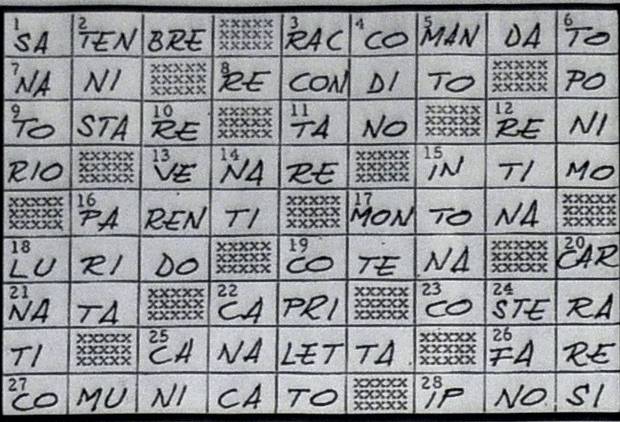 1 SA 2 TEN BRE 3 RAC 4 CO 5 MAN DA 6 TO
7 NA NI 8 RE CON DI TO PO
9 TO STA 10 RE 11 TA NO 12 RE NI
RIO 13 VE 14 NA RE 15 IN TI MO
16 PA REN TI 17 MON TO NA
18 LU RI DO 19 CO TE NA 20 CAR
21 NA TA 22 CA PRI 23 CO 24 STE RA
TI 25 CA NA LET TA 26 FA RE
27 CO MU NI CA TO 28 IP NO SI